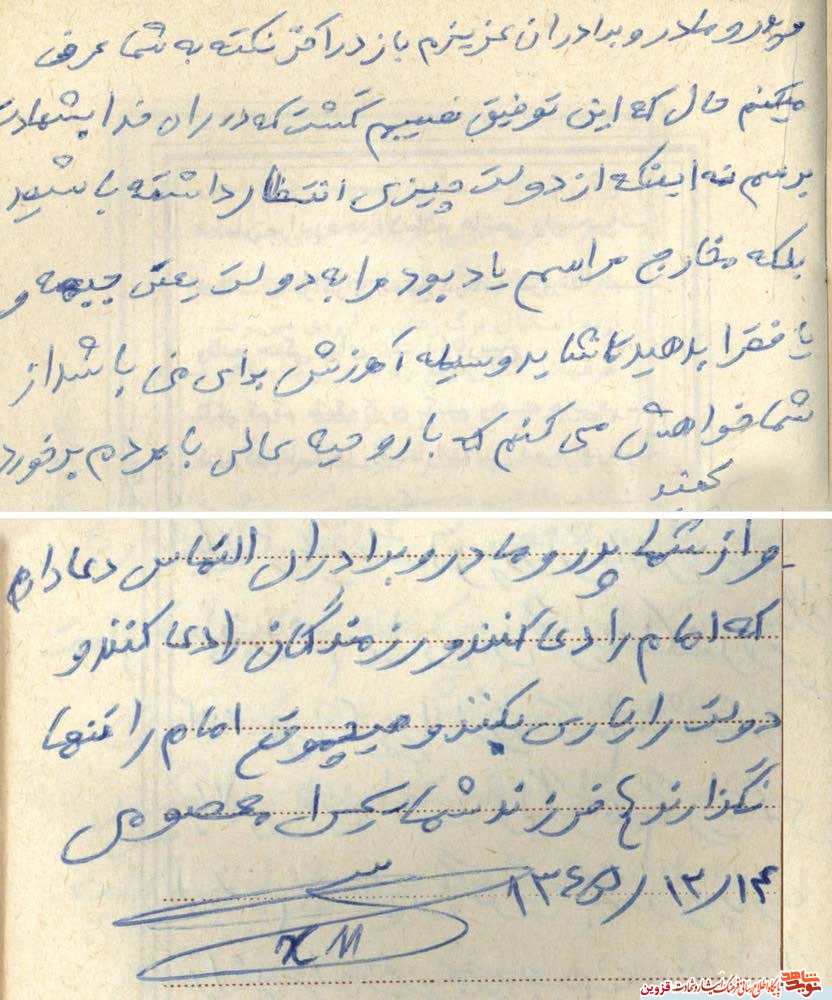 و پدر و مادر و برادران عزیزم باز در آخر نکته به شما عرض
میکنم حال که این توفیق نصیبم گشت که در راه خدا بشهادت
برسم نه اینکه از دولت چیزی انتظار داشته باشید
بلکه مخارج مراسم یاد بود مرا به دولت یعنی جبهه و
یا فقرا بدهید تا شاید وسیله آمرزش برای من باشد از
شما خواهش می کنم که با روحیه عالی با مردم برخورد
کنید
و از شما پدر و مادر و برادران التماس دعا دارم
که امام را دعا کنند و رزمندگان را دعا کنند و
دولت را یاری بکنند و هیچموقع امام را تنها
نگذارند فرزند شما معصومی
۱۳/۱۴
KM
شاهد
نوید
پایگاه اطلاع رسانی فرهنگ ایثار و شهادت قزوین